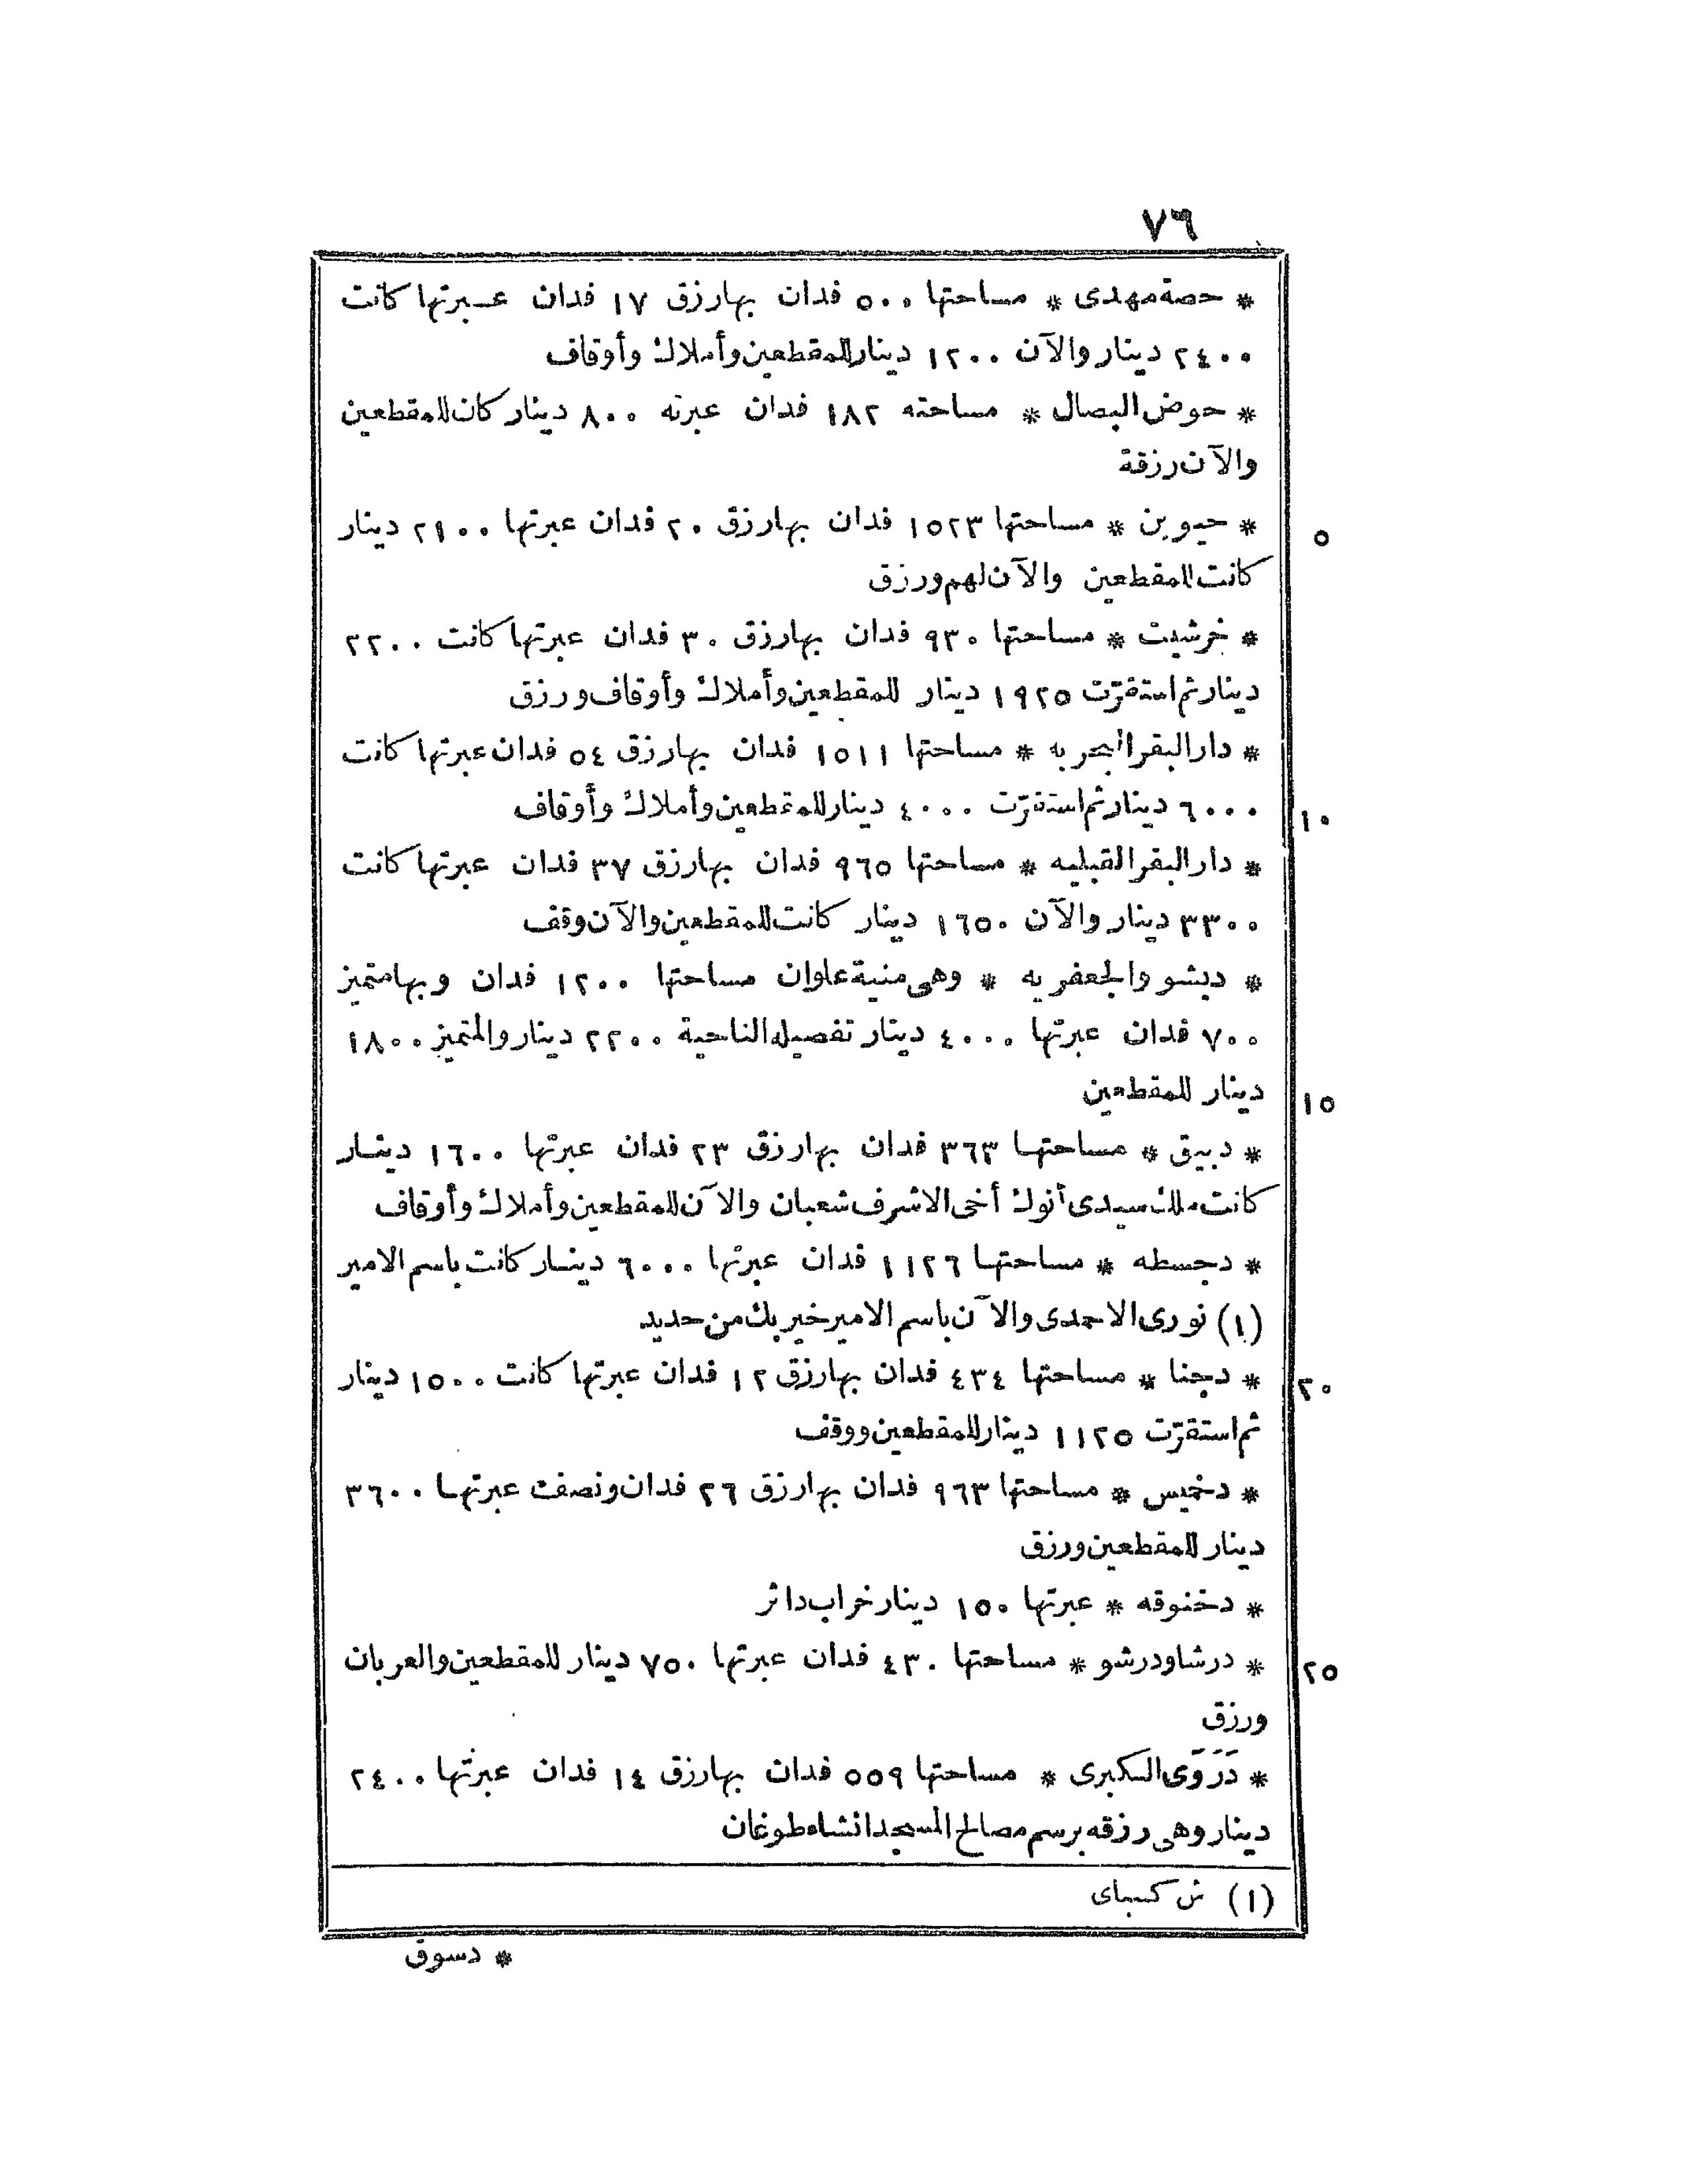 ٧٦
* حصة مهدى * مساحتها ٥٠٠ فدان بها رزق ١٧ فدان عـبرتها كانت
٢٤٠٠ دينار والآن ١٢٠٠ دينار للمقطعين وأملاك وأوقاف
* حوض البصال * مساحته ١٨٢ فدان عبرته ٨٠٠ دينار كان للمقطعين
والآن رزقة
٥
* حيوين * مساحتها ١٥٢٣ فدان بها رزق ٢٠ فدان عبرتها ٢١٠٠ دينار
كانت للمقطعين والآن لهم ورزق
* خرشيت * مساحتها ٩٣٠ فدان بها رزق ٣٠ فدان عبرتها كانت ٢٢٠٠
دينار ثم استقرّت ١٩٢٥ دينار للمقطعين وأملاك وأوقاف ورزق
* دار البقر البحريه * مساحتها ١٥١١ فدان بها رزق ٥٤ فدان عبرتها كانت
١٠
٦٠٠٠ دينار ثم استقرّت ٤٠٠٠ دينار للمقطعين وأملاك وأوقاف
* دار البقر القبليه * مساحتها ٩٦٥ فدان بها رزق ٣٧ فدان عبرتها كانت
٣٣٠٠ دينار والآن ١٦٥٠ دينار كانت للمقطعين والآن وقف
* ديشو والجعفريه * وهى منية علوان مساحتها ١٢٠٠ فدان وبها متميز
٧٠٠ فدان عبرتها ٤٠٠٠ دينار تفصيله الناحية ٢٢٠٠ دينار والمتميز ١٨٠٠
١٥
دينار للمقطعين
* دبيق * مساحتها ٣٦٣ فدان بها رزق ٢٣ فدان عبرتها ١٦٠٠ دينار
كانت ملك سيدى أنوك أخى الاشرف شعبان والآن للمقطعين وأملاك وأوقاف
* دجسطه * مساحتها ١١٢٦ فدان عبرتها ٦٠٠٠ دينار كانت باسم الامير
(١) نورى الاحمدى والآن باسم الامير خير بك من حديد
٢٠
* دجنا * مساحتها ٤٣٤ فدان بها رزق ١٢ فدان عبرتها كانت ١٥٠٠ دينار
ثم استقرّت ١١٢٥ دينار للمقطعين ووقف
* دخميس * مساحتها ٩٦٣ فدان بها رزق ٢٦ فدان ونصف عبرتها ٣٦٠٠
دينار للمقطعين ورزق
* دخنوقه * عبرتها ١٥٠ دينار خراب داثر
٢٥
* درشاودرشو * مساحتها ٤٣٠ فدان عبرتها ٧٥٠ دينار للمقطعين والعربان
ورزق
* دَرَوَى الكبرى * مساحتها ٥٥٩ فدان بها رزق ١٤ فدان عبرتها ٢٤٠٠
دينار وهى رزقه برسم مصالح المسجد انشاء طوغان
(١) ش كسباى
* دسوق